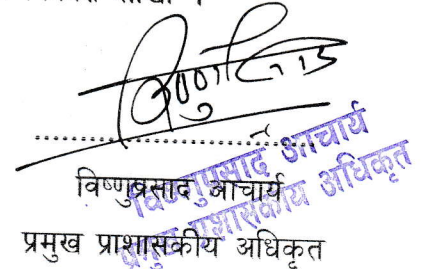 विष्णुप्रसाद आचार्य
प्रमुख प्राशासकीय अधिकृत
विष्णुप्रसाद आचार्य
प्रमुख प्रशासकीय अधिकृत